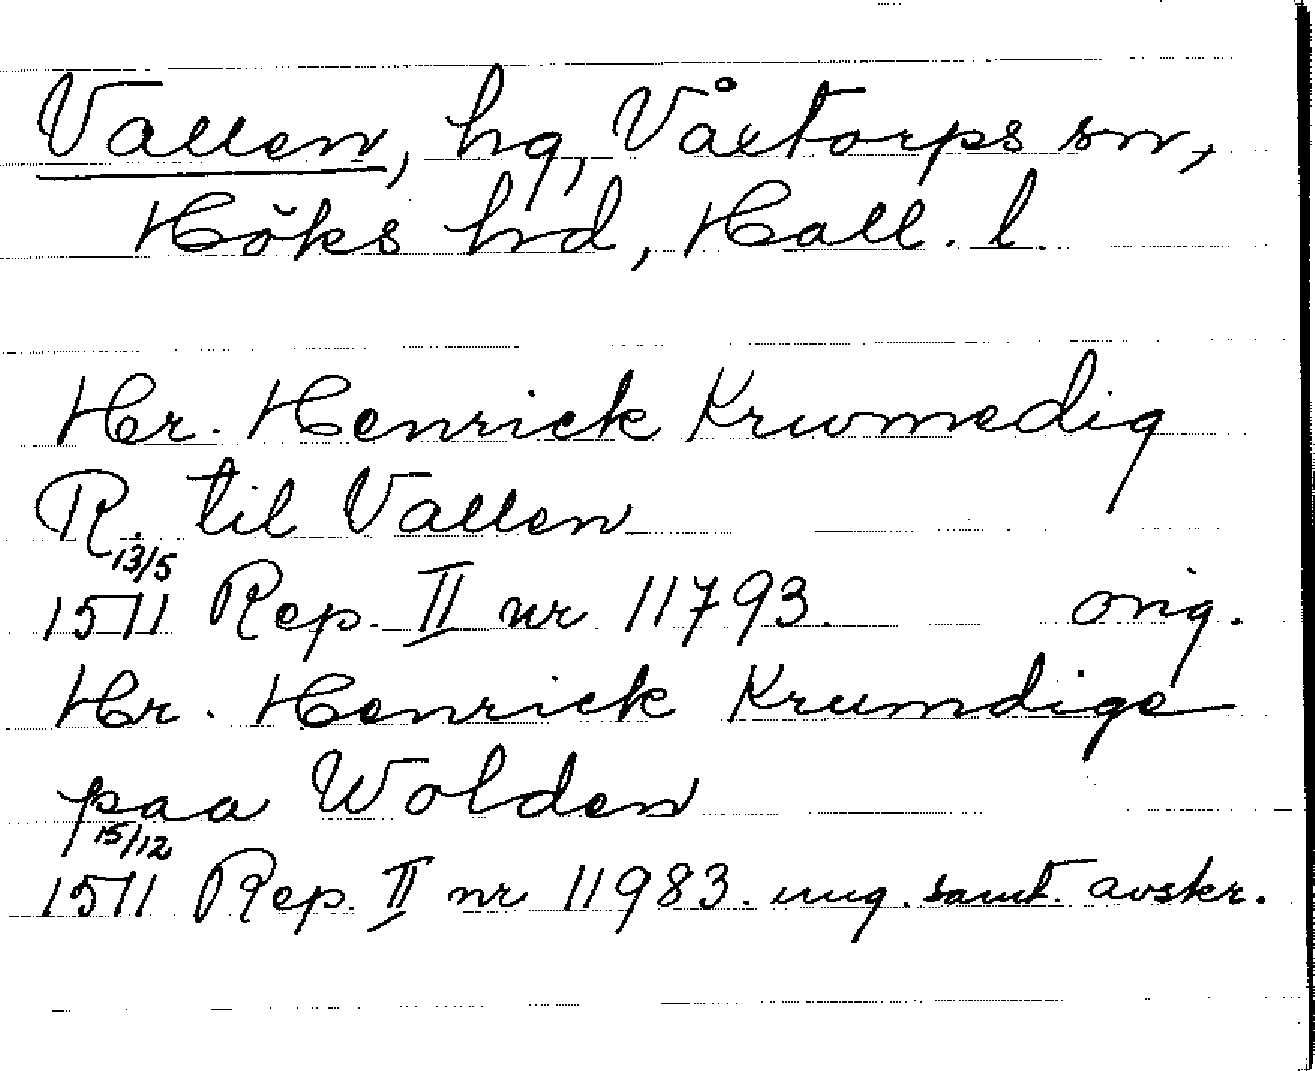 Vallen, hg, Våxtorps sn,
Höks hd, Hall. l.
Hr. Henrick Krwmedig
R. til Vallen
13/5
1511 Rep. II nr 11793. orig.
Hr. Henrick Krumdige
paa Wolden
15/12
1511 Rep. II nr 11983. ung. samt. avskr.